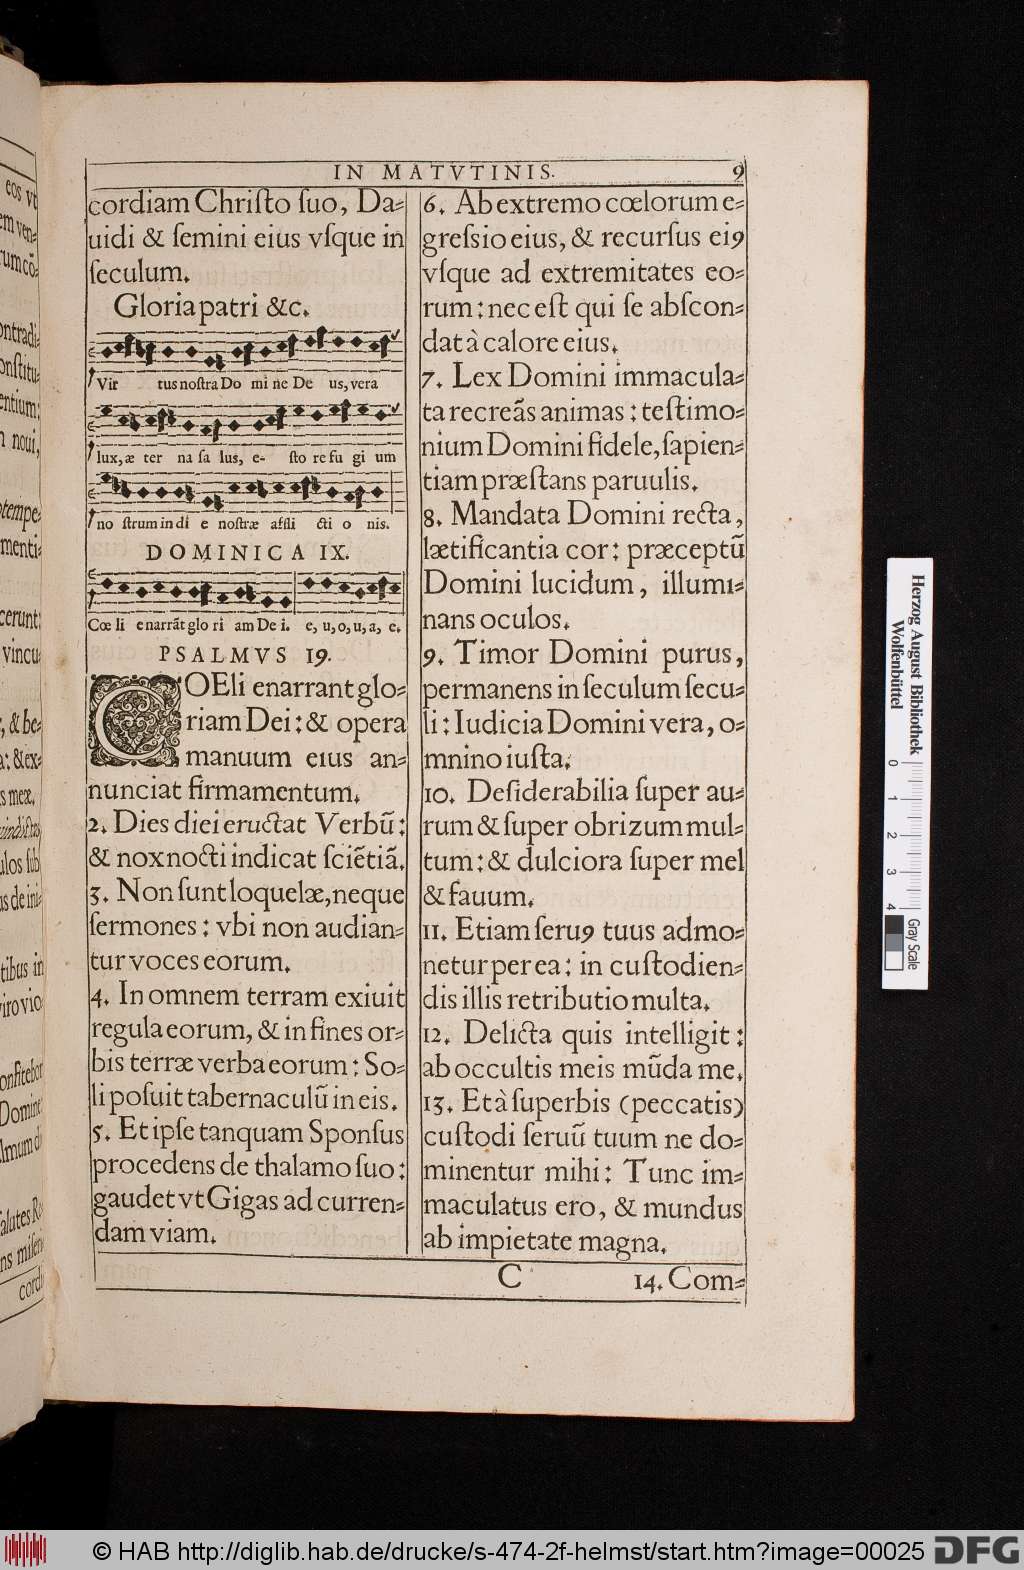 IN MATVTINIS. 9
cordiam Chriſto ſuo, Da-
uidi & ſemini eius vſque in
ſeculum.
Gloria patri &c.
Vir tus noſtra Do mi ne De us, vera
lux, æ ter na ſa lus, e- ſto re fu gi um
no ſtrum in di e noſtræ affli cti o nis.
DOMINICA IX.
Cœ li enarrãt glo ri am De i. e, u, o, u, a, e.
PSALMVS 19.
COEli enarrant glo-
riam Dei: & opera
manuum eius an-
nunciat firmamentum.
2. Dies diei eructat Verbũ:
& nox nocti indicat ſciẽtiã.
3. Non ſunt loquelæ, neque
ſermones: vbi non audian-
tur voces eorum.
4. In omnem terram exiuit
regula eorum, & in fines or-
bis terræ verba eorum: So-
li poſuit tabernaculũ in eis.
5. Et ipſe tanquam Sponſus
procedens de thalamo ſuo:
gaudet vt Gigas ad curren-
dam viam.
6. Ab extremo cœlorum e-
greſsio eius, & recurſus ei9
vſque ad extremitates eo-
rum: nec eſt qui ſe abſcon-
dat à calore eius.
7. Lex Domini immacula-
ta recreãs animas: teſtimo-
nium Domini fidele, ſapien-
tiam præſtans paruulis.
8. Mandata Domini recta,
lætificantia cor: præceptũ
Domini lucidum, illumi-
nans oculos.
9. Timor Domini purus,
permanens in ſeculum ſecu-
li: Iudicia Domini vera, o-
mnino iuſta.
10. Deſiderabilia ſuper au-
rum & ſuper obrizum mul-
tum: & dulciora ſuper mel
& fauum.
11. Etiam ſeru9 tuus admo-
netur per ea: in cuſtodien-
dis illis retributio multa.
12. Delicta quis intelligit:
ab occultis meis mũda me.
13. Et à ſuperbis (peccatis)
cuſtodi ſeruũ tuum ne do-
minentur mihi: Tunc im-
maculatus ero, & mundus
ab impietate magna.
C 14. Com-
Herzog August Bibliothek
Wolfenbüttel
0 1 2 3 4
Gray Scale
© HAB http://diglib.hab.de/drucke/s-474-2f-helmst/start.htm?image=00025
DFG